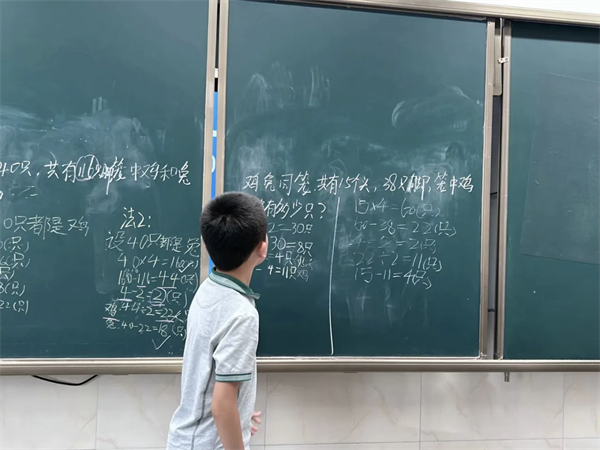 40只,共有116只脚,笼中鸡和兔
0只都是鸡
法2:
设40只都是兔
40×4=160(只)
160-116=44(只)
4-2=2(只)
鸡:44÷2=22(只)
兔:40-22=18(只)
鸡兔同笼,共有15个头,38只脚,笼中鸡
有多少只?
2=30只
30=8只
4=11只
15×4=60(只)
60-38=22(只)
4-2=2(只)
22÷2=11(只)
15-11=4(只)